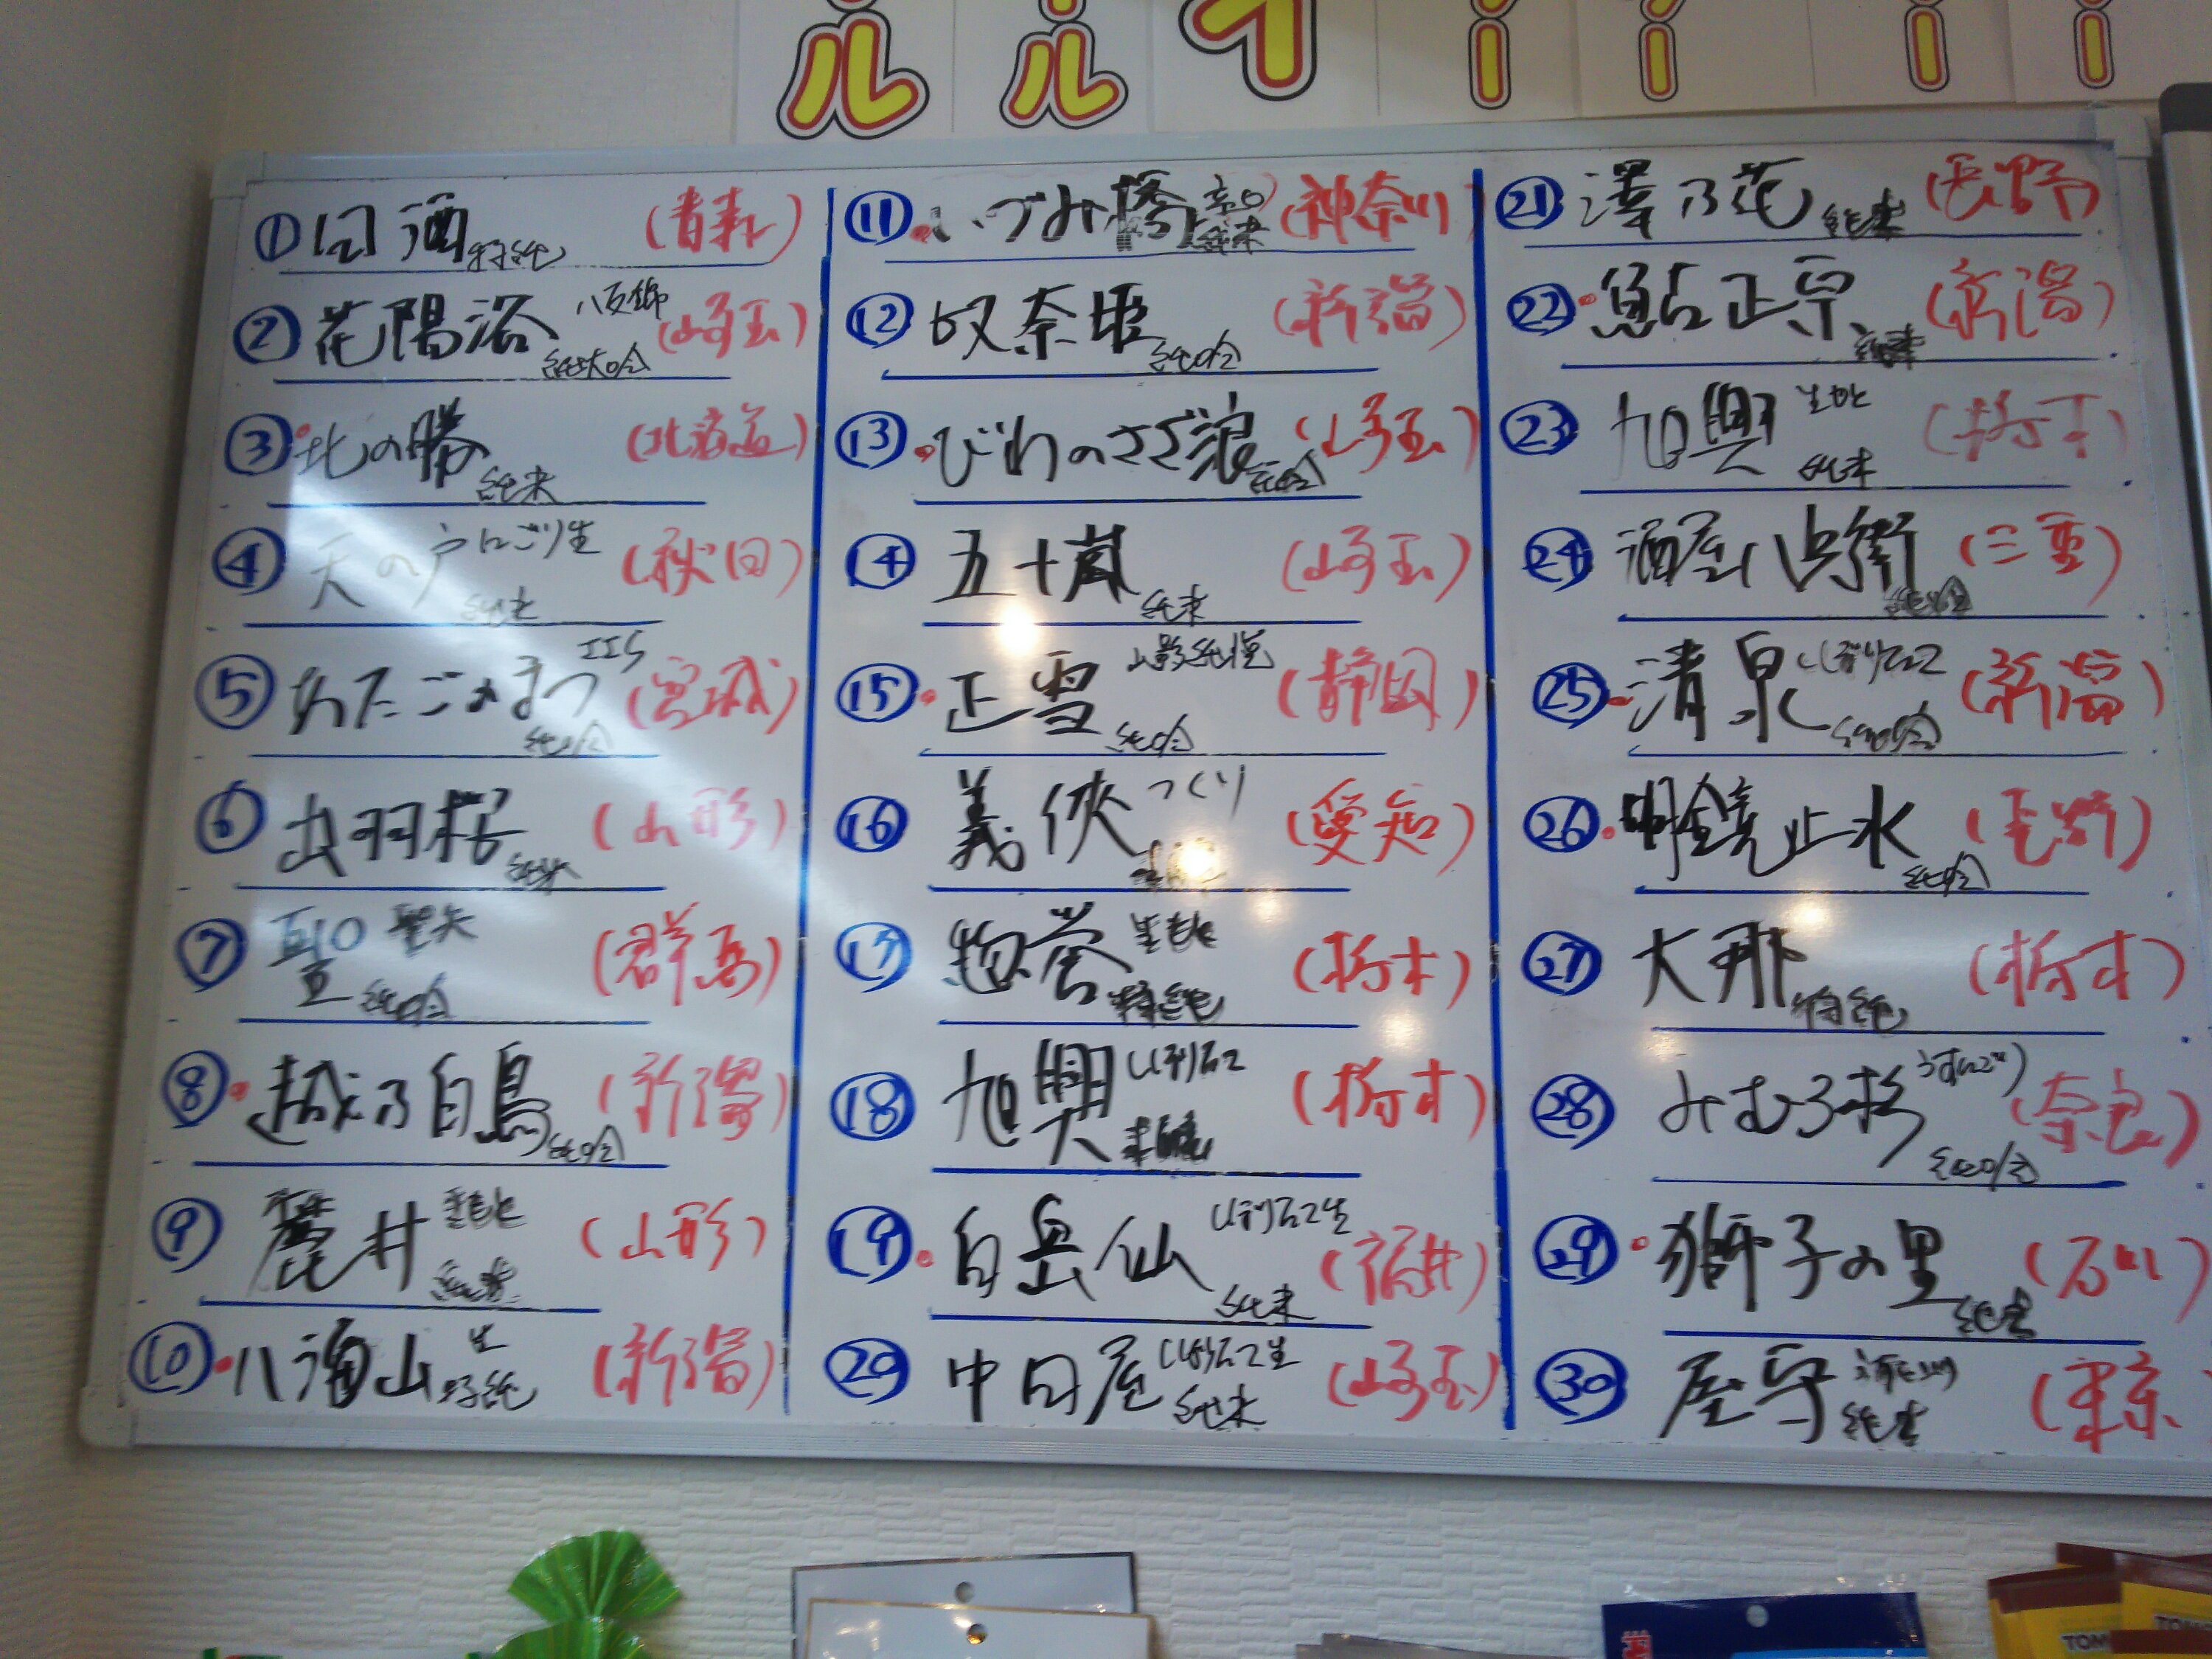 ル ル イ ー ー ー ー
① 田酒 特純 (青森)
② 花陽浴 八反錦 純大吟 (埼玉)
③ 北の勝 純米 (北海道)
④ 天の戸 にごり生 純米 (秋田)
⑤ あたごのまつ 純吟 (宮城)
⑥ 出羽桜 純米 (山形)
⑦ 聖 純吟 (群馬)
⑧ 越乃白鳥 純吟 (新潟)
⑨ 麓井 きもと 純米 (山形)
⑩ 八海山 生 特純 (新潟)
⑪ いづみ橋 純米 (神奈川)
⑫ 奴奈姫 純吟 (新潟)
⑬ びわのさざ浪 純吟 (埼玉)
⑭ 五十嵐 純米 (埼玉)
⑮ 正雪 山影純悦 純吟 (静岡)
⑯ 義侠 つくり (愛知)
⑰ 惣誉 生もと 特純 (栃木)
⑱ 旭興 しぼりたて (栃木)
⑲ 白岳仙 しぼりたて生 純米 (福井)
⑳ 中田屋 しぼりたて生 純米 (埼玉)
㉑ 澤乃花 純米 (長野)
㉒ 鮎正宗 純米 (新潟)
㉓ 旭興 生もと 純米 (栃木)
㉔ 酒屋八兵衛 (三重)
㉕ 清泉 しぼりたて 純吟 (新潟)
㉖ 明鏡止水 純吟 (長野)
㉗ 大那 特純 (栃木)
㉘ みむろ杉 うすにごり 純吟 (奈良)
㉙ 獅子の里 純米 (石川)
㉚ 屋守 純米 (東京
TOM